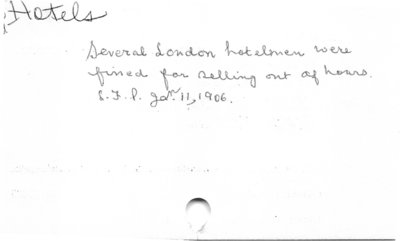 Hotels
Several London hotelmen were
fined for selling out of hours.
L.F.P. Jan. 11, 1906.